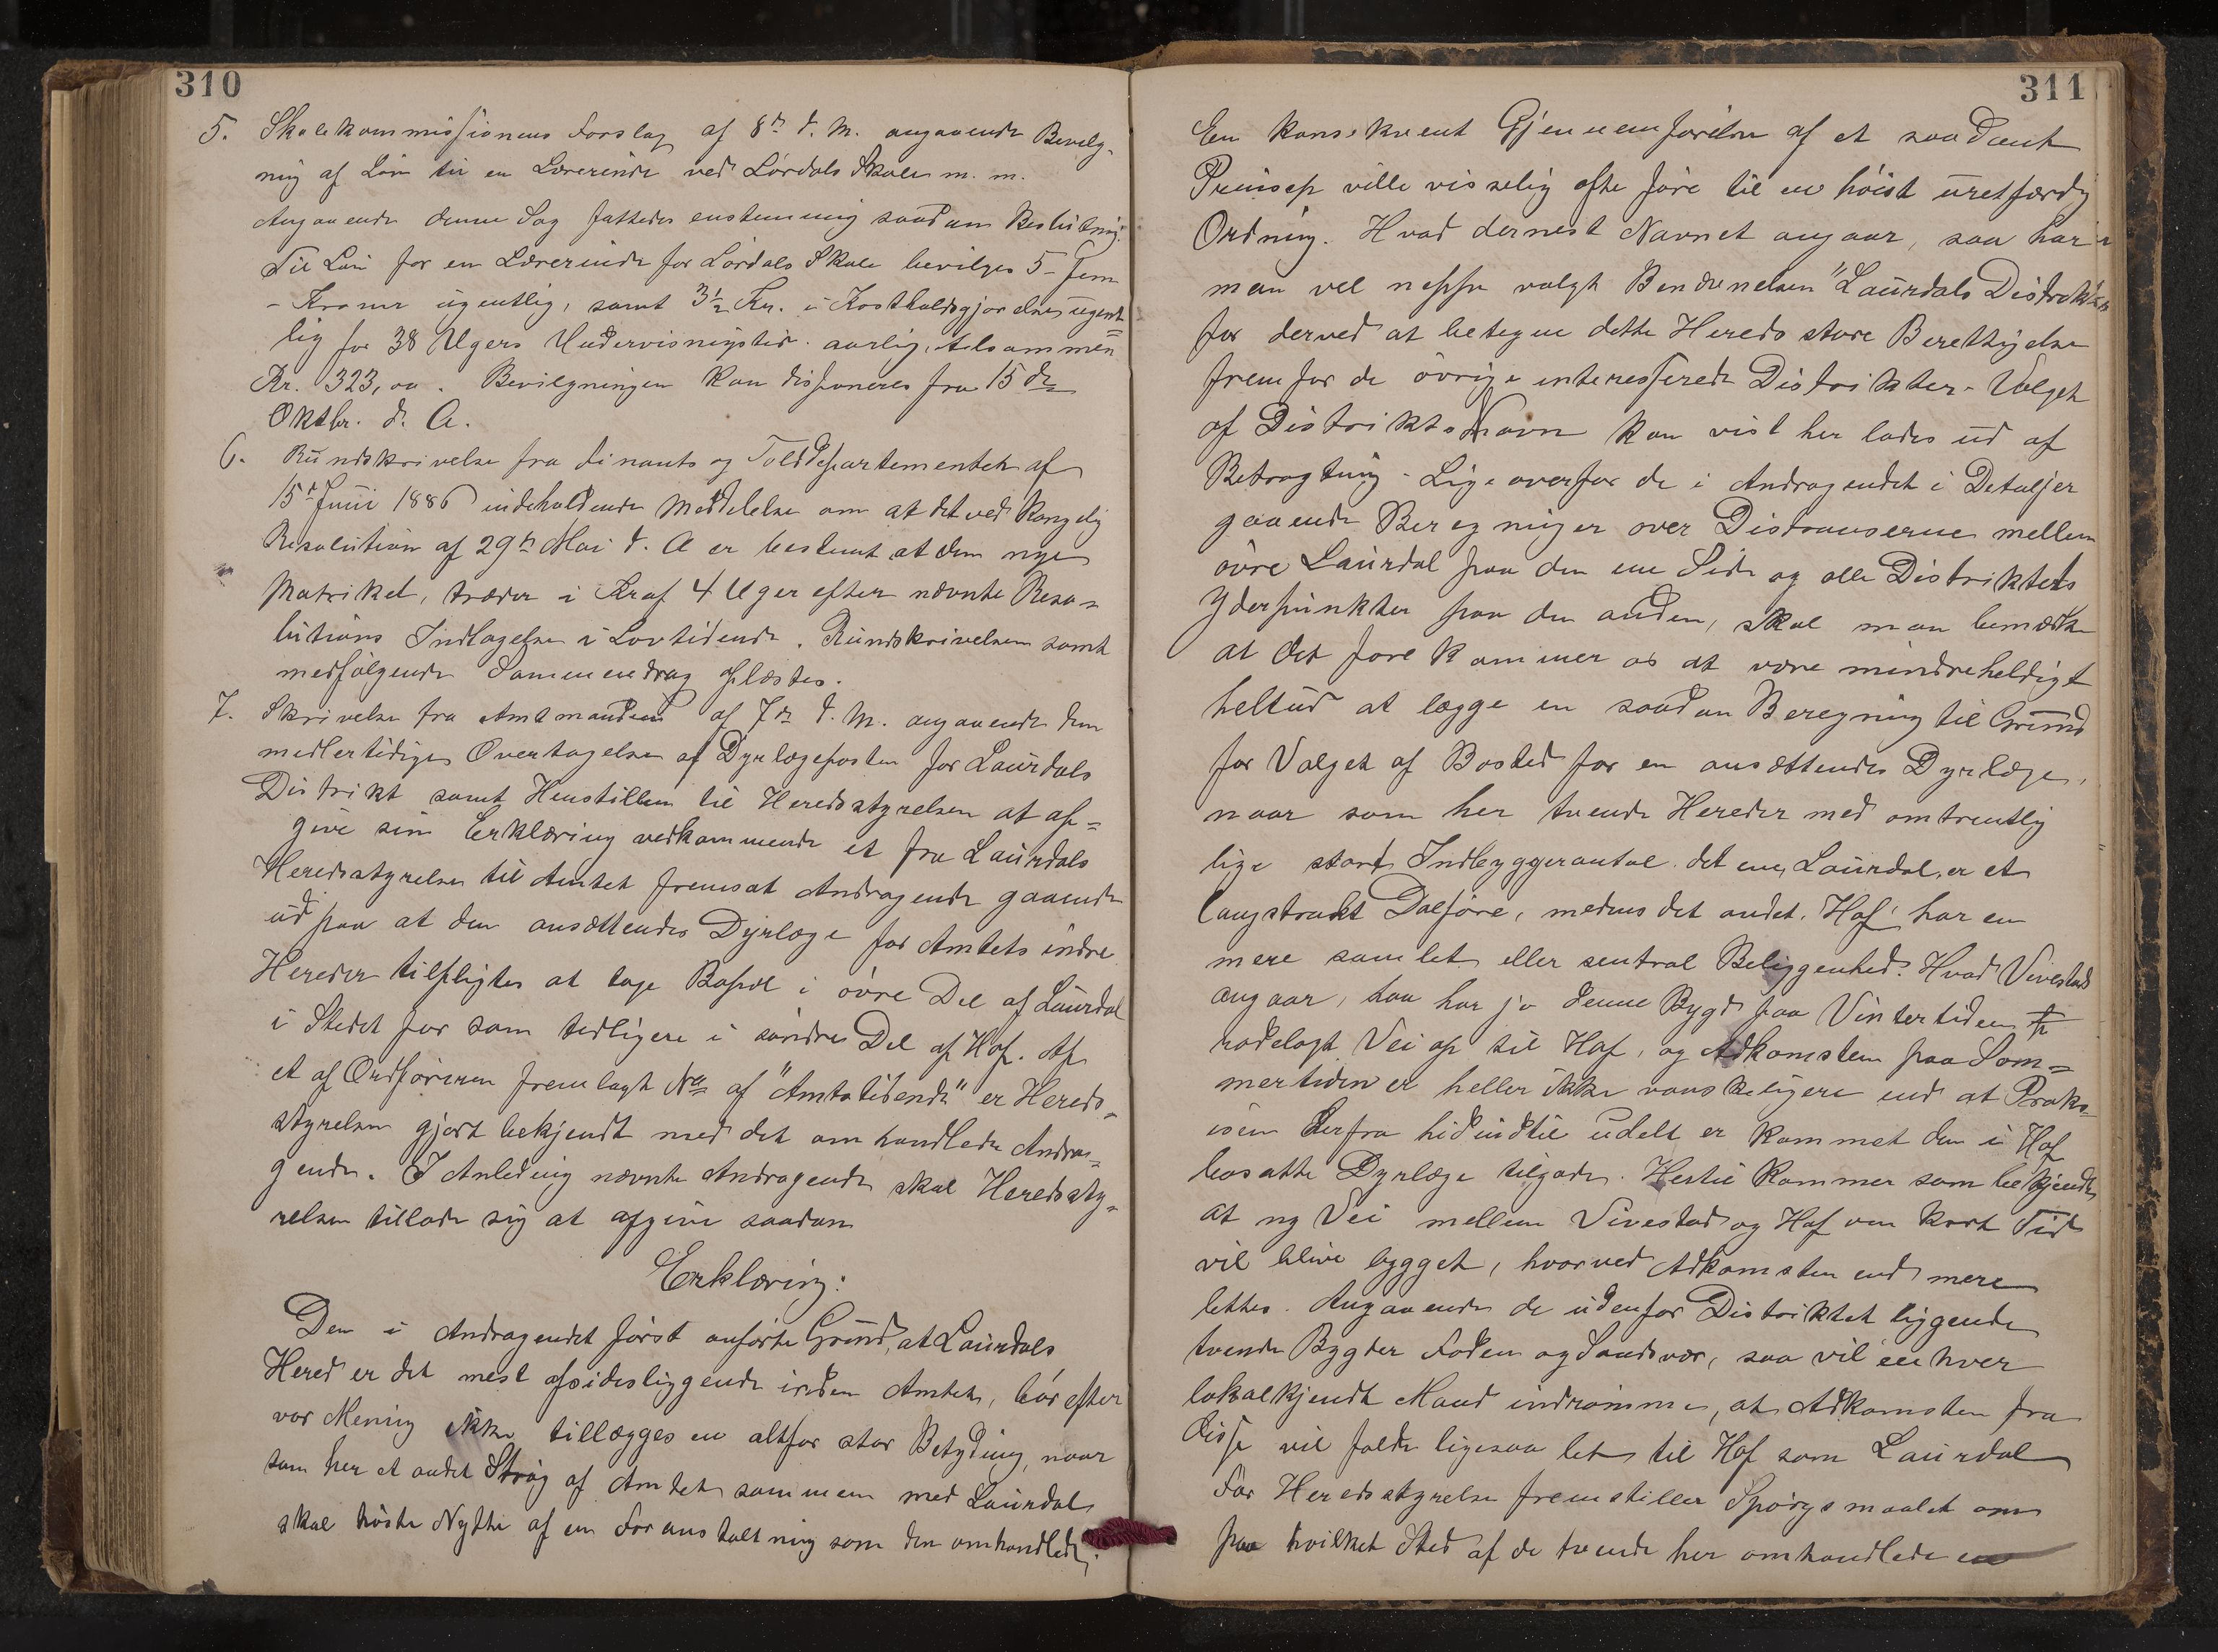 310
5. Skolekommissionens Forslag af 8de d. M. angaaende Bevilg-
ning af Løn til en Lærerinde ved Lørdals Skole m. m.
Angaaende denne Sag fattedes enstemmig saadan Beslutning:
Til Løn for en Lærerinde for Lørdals Skole bevilges 5 - fem
- Kroner ugentlig, samt 3½ Kr. i Kostholdsgjørelse ugent=
lig for 38 Ugers Undervisningstid aarlig, tilsammen
Kr. 323,00. Bevilgningen kan disponeres fra 15de
Oktbr. d. A.
6. Rundskrivelse fra Finants og Tolddepartementet af
15de Juni 1886 indeholdende Meddelelse om at det ved Kongelig
Resolution af 29de Mai d. A er bestemt at den nye
Matrikel, træder i Kraf 4 Uger efter nævnte Reso=
lutions Indtagelse i Lovtidende. Rundskrivelsen samt
medfølgende Sammendrag oplæstes.
7. Skrivelse fra Amtmanden af 7de d. M. angaaende den
medlertidige Overtagelse af Dyrlægeposten for Laurdals
Distrikt samt Henstillen til Heredsstyrelsen at af=
give sin Erklæring vedkommende et fra Laurdals
Heredsstyrelse til Amtet fremsat Andragende gaaende
ud paa at den ansættendes Dyrlæge for Amtets indre
Hereder tilpligtes at tage Bopæl i øvre Del af Laurdal
i Stedet for som tidligere i søndre Del af Hof. Af
et af Ordføreren fremlagt No af "Amtstidende" er Hereds=
styrelsen gjort bekjendt med det omhandlede Andra=
gende. I Anledning nævnte Andragende skal Heredssty=
relsen tillade sig at afgive saadan
Erklæring:
Den i Andragendet først anførte Grund, at Laurdals
Hered er det mest afsidesliggende inden Amtet, bør efter
vor Mening ikke tillægges en altfor stor Betyding, naar
som her et andet Strøg af Amtet sammen med Laurdal
skal høste Nytte af en Foranstaltning som den omhandlede;
311
En konsekvent Gjennemførelse af et saadant
Prinsep ville visselig ofte føre til en høist uretfærdig
Ordning. Hvad dernest Navnet angaar, saa har
man vel neppe valgt Benævnelsen "Laurdals Distrikt"
for derved at betegne dette Hereds store Berettigelse
fremfor de øvrige interesserede Distrikter - Valget
af Distrikts Navn kan vist her lades ud af
Betragtning - Lige overfor de i Andragendet i Detaljer
gaaende Beregninger over Distanserne mellem
øvre Laurdal paa den ene Side og alle Distriktets
Yderpunkter paa den anden, skal man bemærke
at det forekommer os at være mindreheldigt
heltud at lægge en saadan Beregning til Grund
for Valget af Bosted for en ansættendes Dyrlæge,
naar som her tvende Hereder med omtrentlig
lige stort Indbyggerantal det ene, Laurdal, er et
langstrakt Dalføre, medens det andet, Hof, har en
mere samlet eller sentral Beliggenhed. Hvad Vivestad
angaar, saa har jo denne Bygd paa Vintertiden
rodelagt Vei op til Hof, og Adkomsten paa Som=
mertiden er heller ikke vanskeligere end at Praks-
isen derfra hidindtil udelt er kommet den i Hof
bosatte Dyrlæge tilgode. Hertil kommer som bekjendt,
at ny Vei mellem Vivestad og Hof om kort Tid
vil blive bygget, hvorved Adkomsten end mere
lettes. Angaaende de udenfor Distriktet liggende
tvende Bygder Foden og Sandsvær, saa vil enhver
lokalkjendt Mand indrømme, at Adkomsten fra
disse vil falde ligesaa let til Hof som Laurdal
Før Heredsstyrelse fremstiller Spørgsmaalet om
paa hvilket Sted af de tvende her omhandlede en